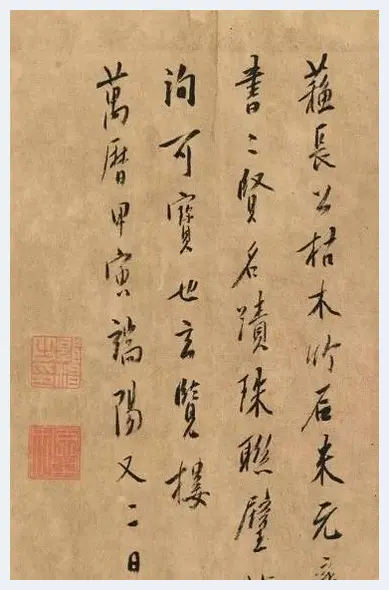 蘓長公枯木竹石米元
書二賢名蹟珠聯璧
洵可寶也玄覽樓
萬曆甲寅端陽又二日